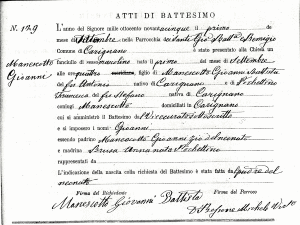 ATTI DI BATTESIMO
N. 129
L'anno del Signore mille ottocento novantacinque il primo del
mese di Settembre nella Parrocchia dei Santi Gio. Batt.a e Remigio
Comune di Carignano è stato presentato alla Chiesa un
Manescotto
Giovanni
fanciullo di sesso mascolino nato il primo del mese di Settembre
alle ore quattro figlio di Manescotto Giovanni Battista
del fu Antonio nativo di Carignano e di
Francesca del fu Stefano nativa di Carignano
coniugi Manescotto domiciliati in Carignano
cui si amministrò il Battesimo da
e si impose il nome Giovanni
essendo padrino Manescotto Giovanni zio del neonato
e madrina Anna nata
rappresentati da
L'indicazione della nascita colla richiesta del Battesimo è stata fatta dal padre del
neonato
Firma del Richiedente
Firma del Parroco
Manescotto Giovanni Battista
D. Michele